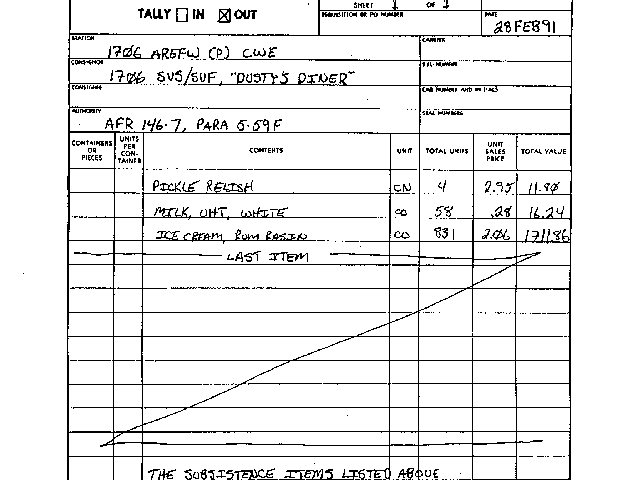 SHEET 1 OF 1
TALLY IN OUT
REQUISITION OR PO NUMBER
DATE
28FEB91
STATION
1706 AREFW (P) CWE
CARRIER
CONSIGNOR
1706 SVS/SVF, "DUSTY'S DINER"
CONSIGNEE
CAR NUMBER AND INITIALS
SEAL NUMBERS
AUTHORITY
AFR 146-7, PARA 5-59F
CONTAINERS OR PIECES UNITS PER CONTAINER CONTENTS UNIT TOTAL UNITS UNIT SALES PRICE TOTAL VALUE
PICKLE RELISH CN 4 2.95 11.80
MILK, UHT, WHITE CO 58 .28 16.24
ICE CREAM, RUM RASIN CO 831 2.06 1711.86
LAST ITEM
THE SUBSISTENCE ITEMS LISTED ABOVE